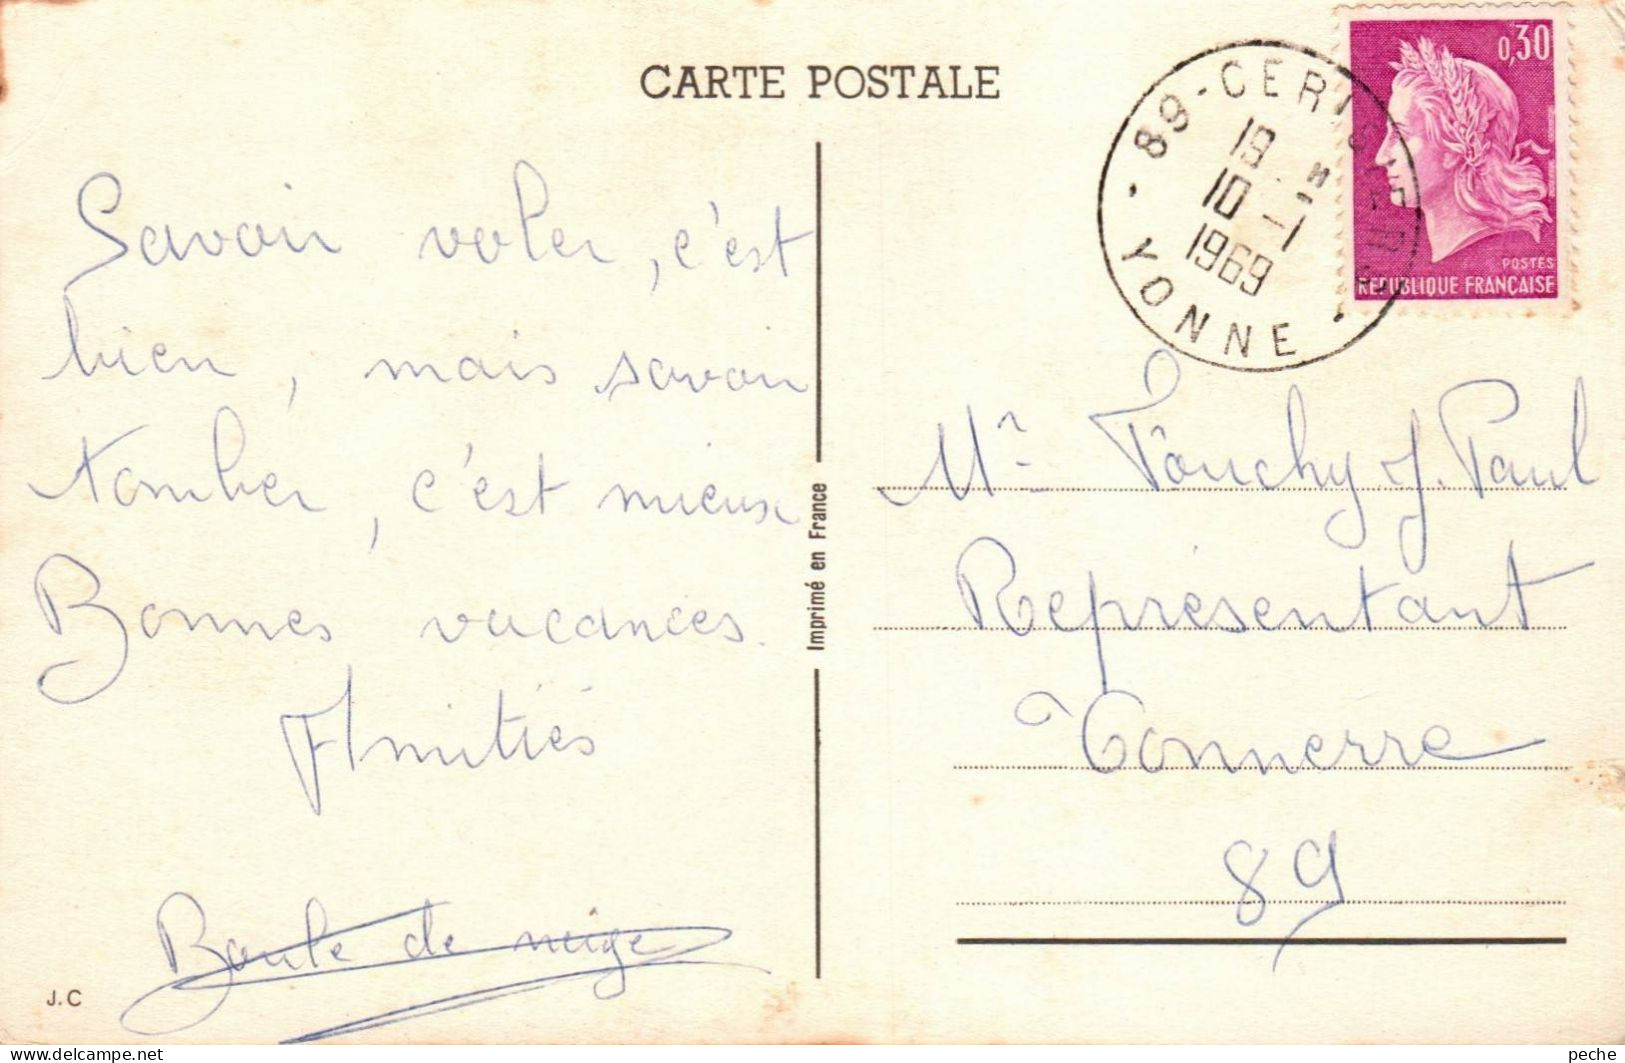 CARTE POSTALE
Savoir voler, c'est
bien, mais savoir
tomber, c'est mieux
Bonnes vacances.
Amitiés
Boule de neige
J.C
Imprimé en France
89 - CERISIERS
19 H
10 - 1
1969
YONNE
0,30
POSTES
REPUBLIQUE FRANÇAISE
Mr Pouchy J. Paul
Représentant
Tonnerre
89
peche